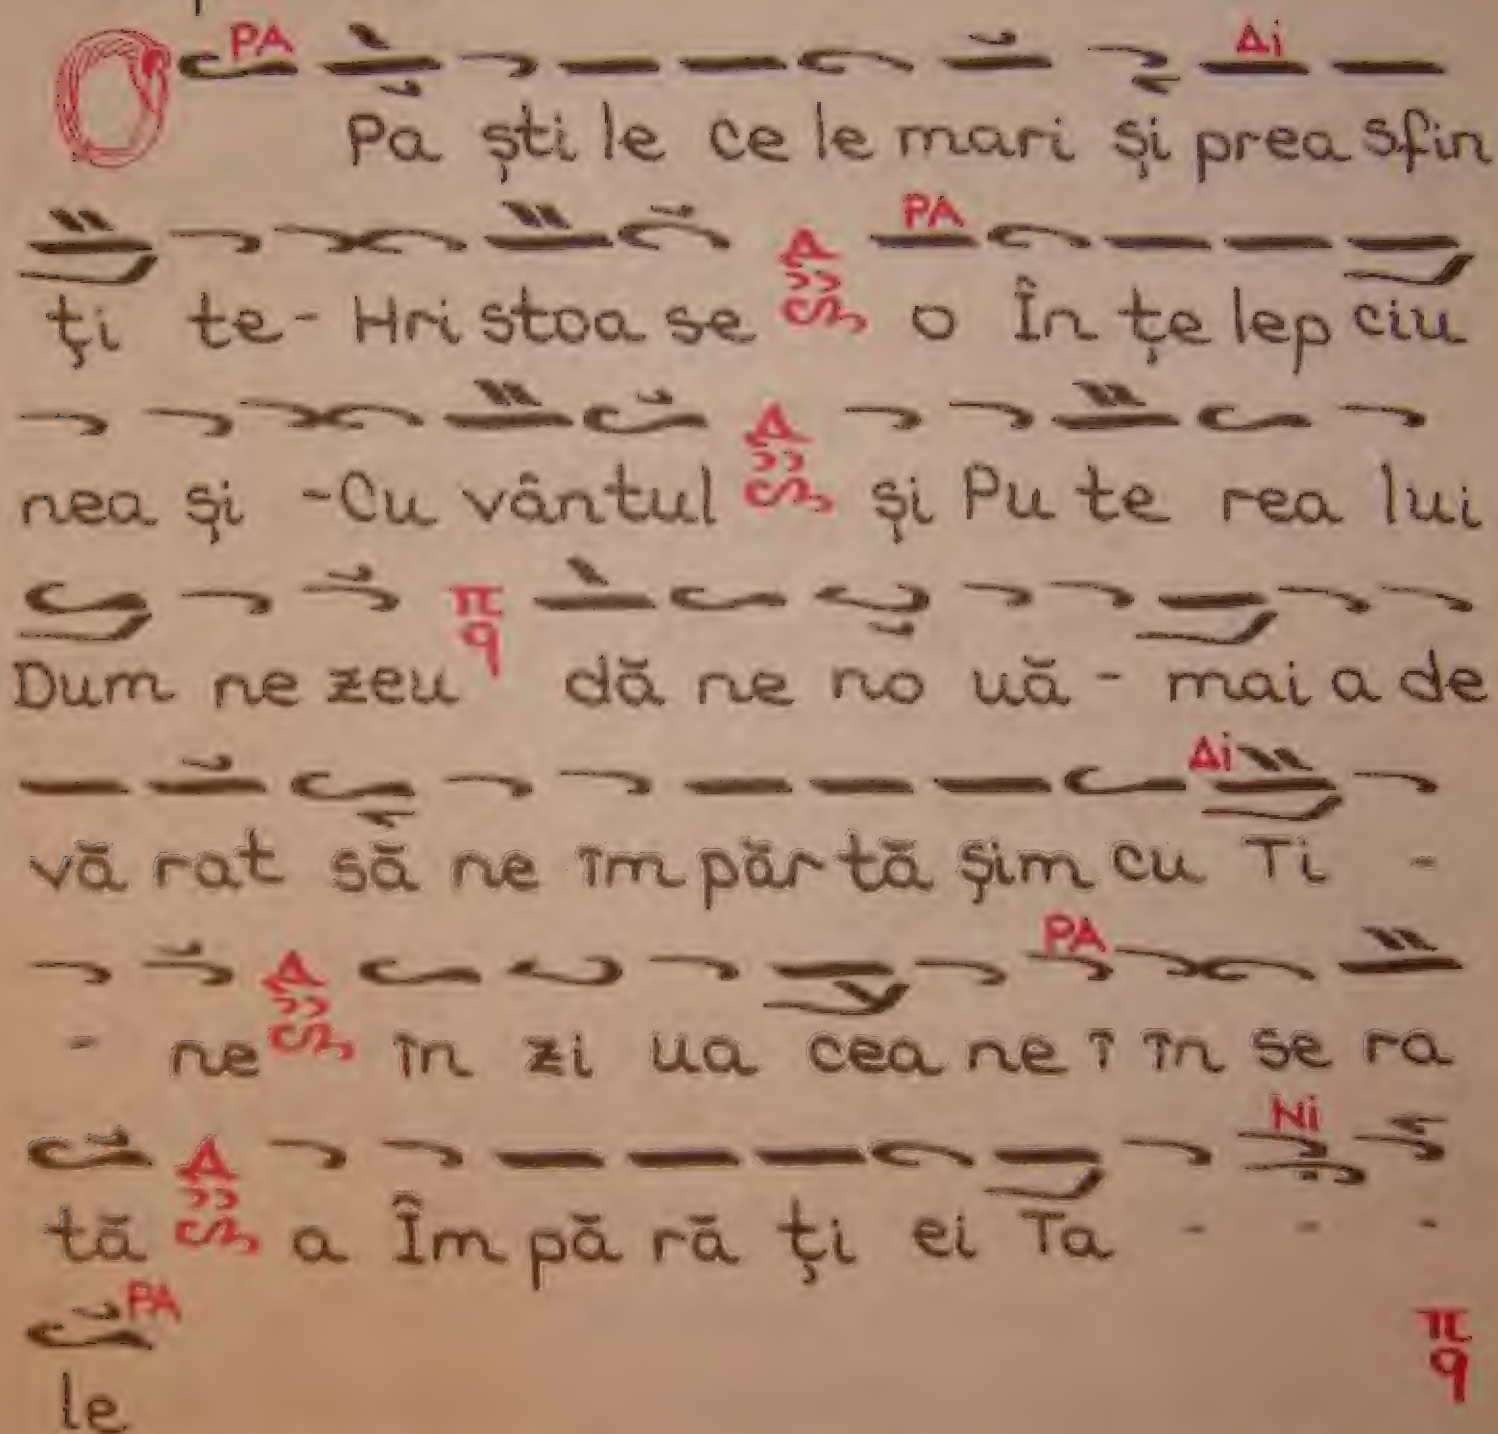 PA Δi
O Pa ști le ce le mari și prea sfin
PA
ți te - Hri stoa se Δ o În țe lep ciu
nea și - Cu vântul Δ și Pu te rea lui
Dum ne zeu π q dă ne no uă - mai a de
Δi
vă rat să ne îm păr tă șim cu Ti -
PA
- ne Δ în zi ua cea ne î în se ra
Ni
tă Δ a Îm pă ră ți ei Ta - - -
PA
le π q